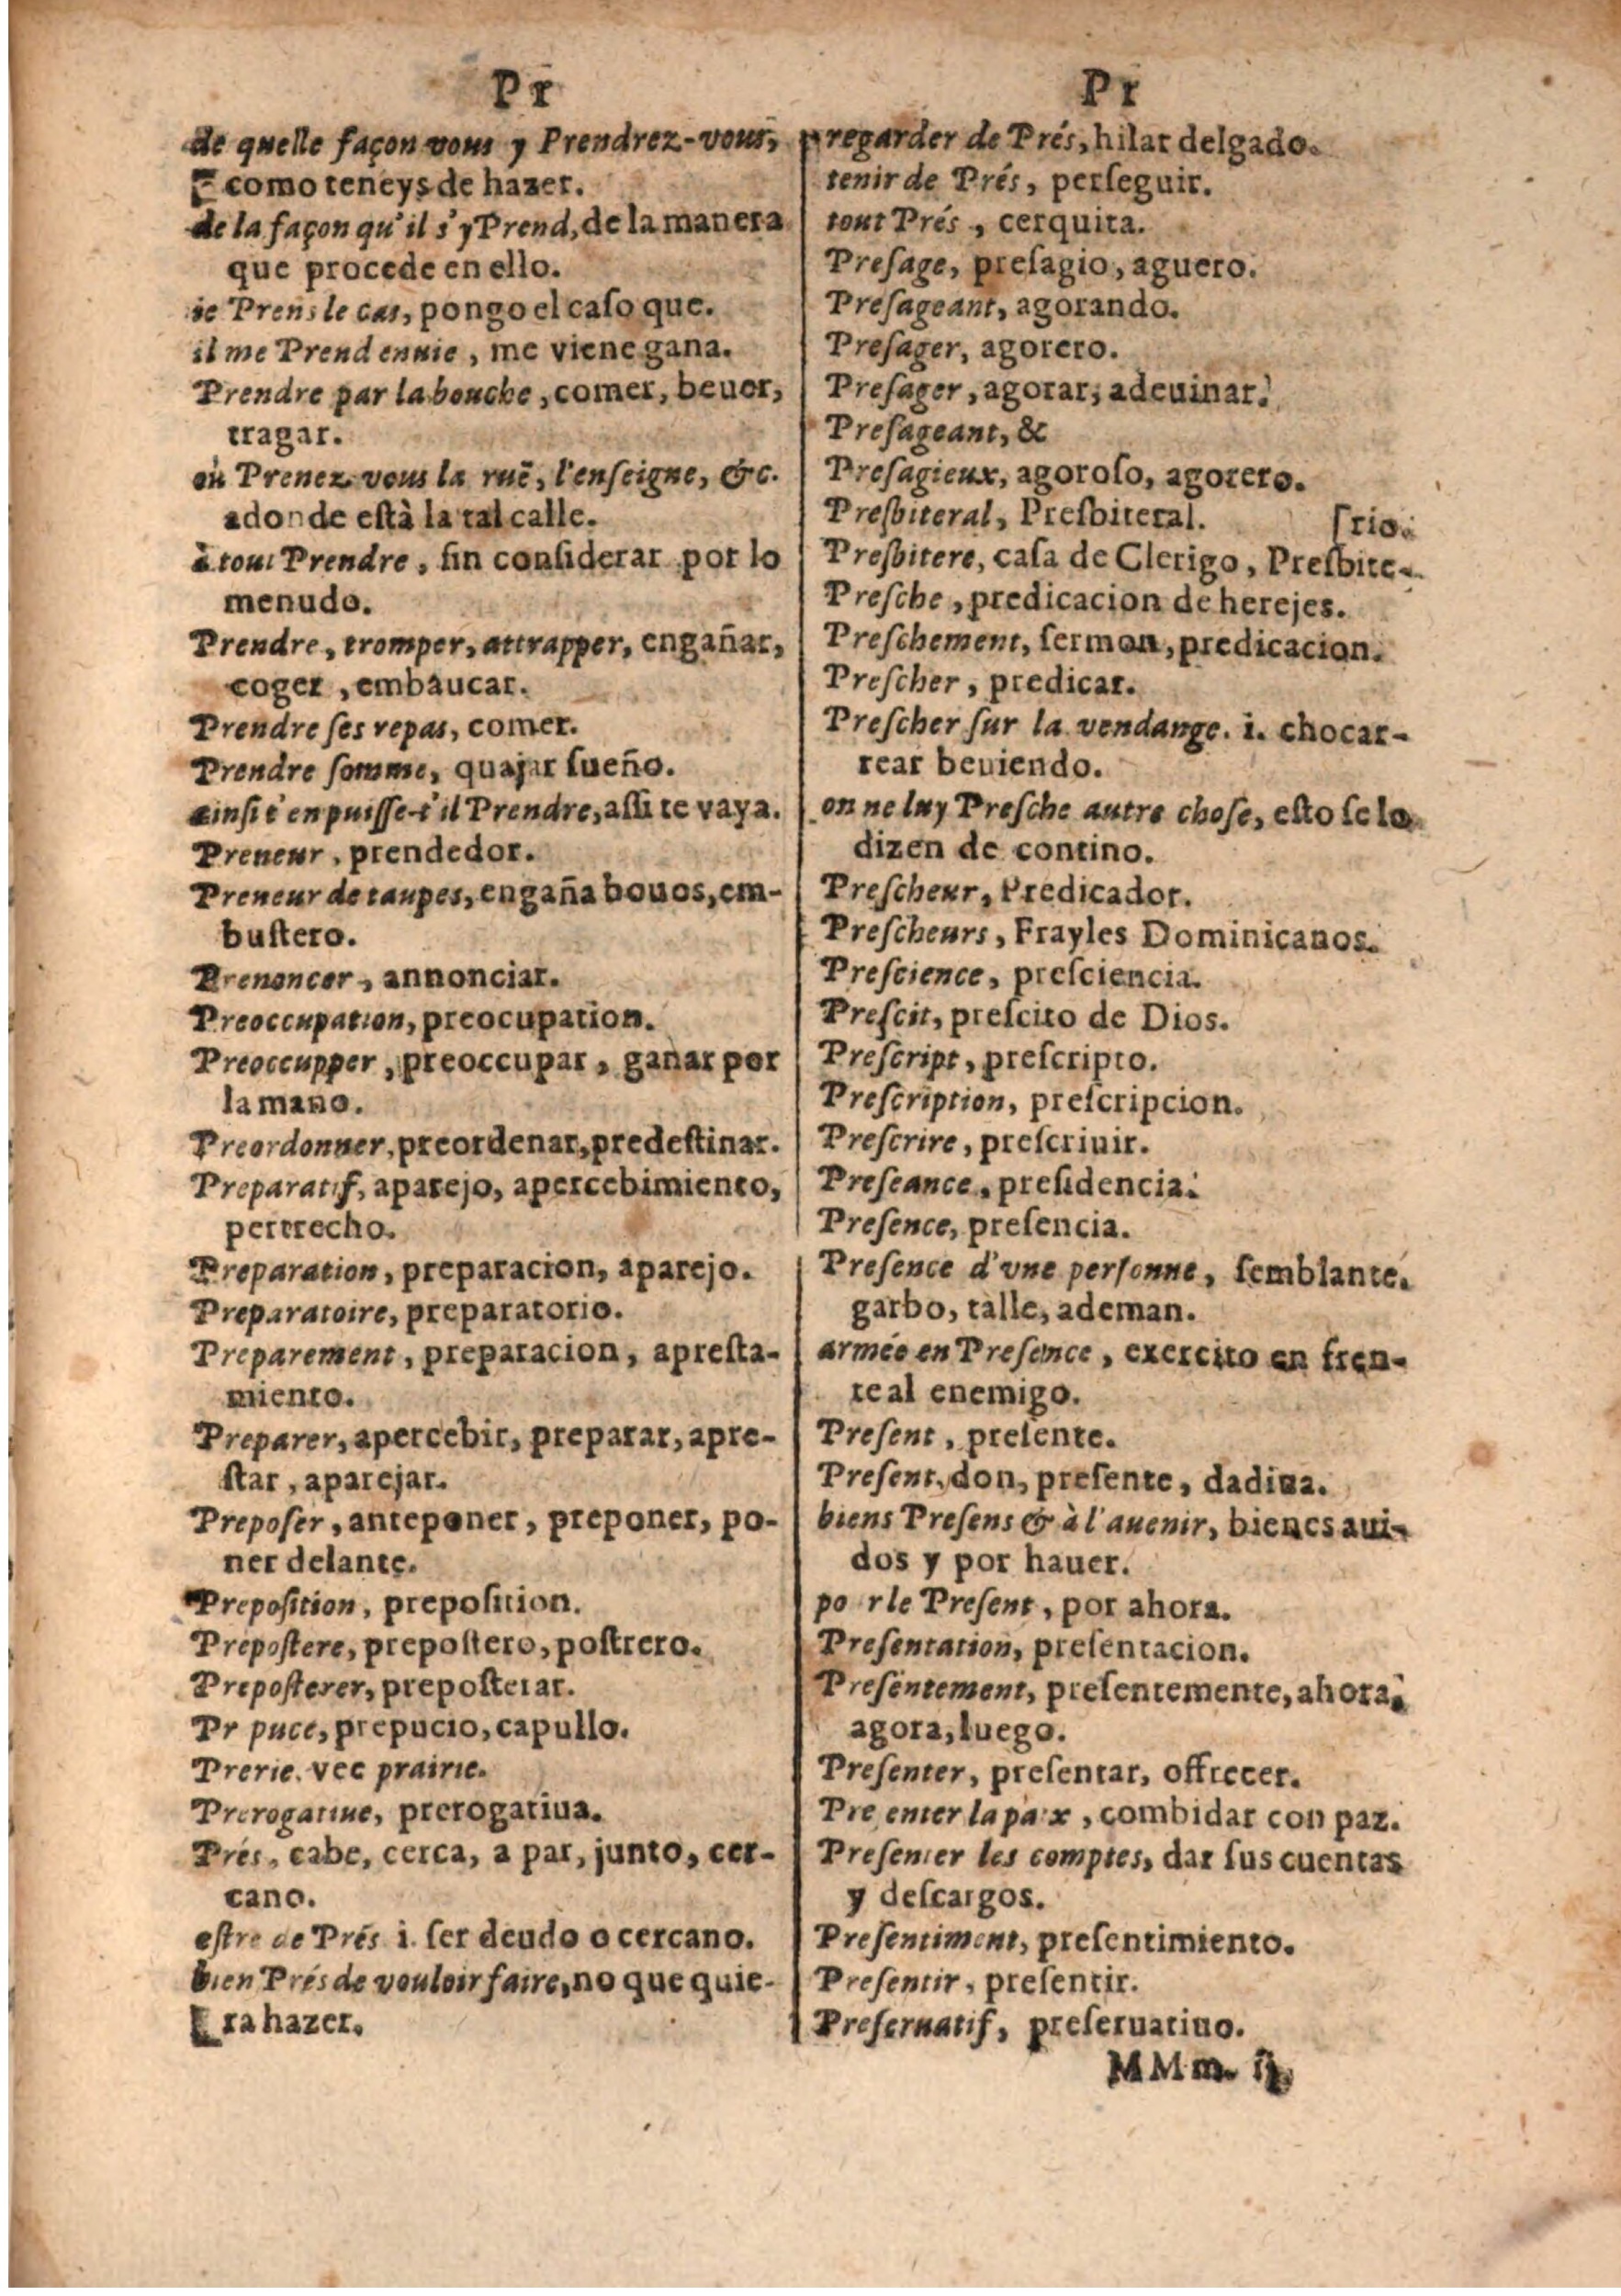 Pr
de quelle façon vous y Prendrez-vous,
como teneys de hazer.
de la façon qu'il s'y Prend, de la manera
que procede en ello.
ie Prens le cas, pongo el caſo que.
il me Prend enuie, me viene gana.
Prendre par la bouche, comer, beuer,
tragar.
où Prenez vous la ruë, l'enſeigne, &c.
adonde eſtà la tal calle.
à tout Prendre, ſin conſiderar por lo
menudo.
Prendre, tromper, attrapper, engañar,
coger, embaucar.
Prendre ſes repas, comer.
Prendre ſomme, quajar ſueño.
ainſi t'en puiſſe-t'il Prendre, aſſi te vaya.
Preneur, prendedor.
Preneur de taupes, engaña bouos, em-
buſtero.
Prenoncer, annonciar.
Preoccupation, preocupation.
Preoccupper, preoccupar, ganar por
la mano.
Preordonner, preordenar, predeſtinar.
Preparatif, aparejo, apercebimiento,
pertrecho.
Preparation, preparacion, aparejo.
Preparatoire, preparatorio.
Preparement, preparacion, apreſta-
miento.
Preparer, apercebir, preparar, apre-
ſtar, aparejar.
Prepoſer, anteponer, preponer, po-
ner delante.
Prepoſition, prepoſition.
Prepoſtere, prepoſtero, poſtrero.
Prepoſterer, prepoſterar.
Pr puce, prepucio, capullo.
Prerie. vee prairie.
Prerogatiue, prerogatiua.
Prés, cabe, cerca, a par, junto, cer-
cano.
eſtre de Prés i. ſer deudo o cercano.
bien Prés de vouloir faire, no que quie-
ra hazer.
Pr
regarder de Prés, hilar delgado.
tenir de Prés, perſeguir.
tout Prés, cerquita.
Preſage, preſagio, aguero.
Preſageant, agorando.
Preſager, agorero.
Preſager, agorar, adeuinar.
Preſageant, &
Preſagieux, agoroſo, agorero.
Preſbiteral, Preſbiteral. [rio.
Preſbitere, caſa de Clerigo, Preſbite-
Preſche, predicacion de herejes.
Preſchement, ſermon, predicacion.
Preſcher, predicar.
Preſcher ſur la vendange. i. chocar-
rear beuiendo.
on ne luy Preſche autre choſe, eſto ſe lo
dizen de contino.
Preſcheur, Predicador.
Preſcheurs, Frayles Dominicanos.
Preſcience, preſciencia.
Preſcit, preſcito de Dios.
Preſcript, preſcripto.
Preſcription, preſcripcion.
Preſcrire, preſcriuir.
Preſeance, preſidencia.
Preſence, preſencia.
Preſence d'vne perſonne, ſemblante.
garbo, talle, ademan.
armée en Preſence, exercito en fren-
te al enemigo.
Preſent, preſente.
Preſent, don, preſente, dadiua.
biens Preſens & à l'auenir, bienes aui-
dos y por hauer.
po r le Preſent, por ahora.
Preſentation, preſentacion.
Preſentement, preſentemente, ahora,
agora, luego.
Preſenter, preſentar, offrecer.
Pre enter la pa x, combidar con paz.
Preſenter les comptes, dar ſus cuentas
y deſcargos.
Preſentiment, preſentimiento.
Preſentir, preſentir.
Preſeruatif, preſeruatiuo.
MMm. ij